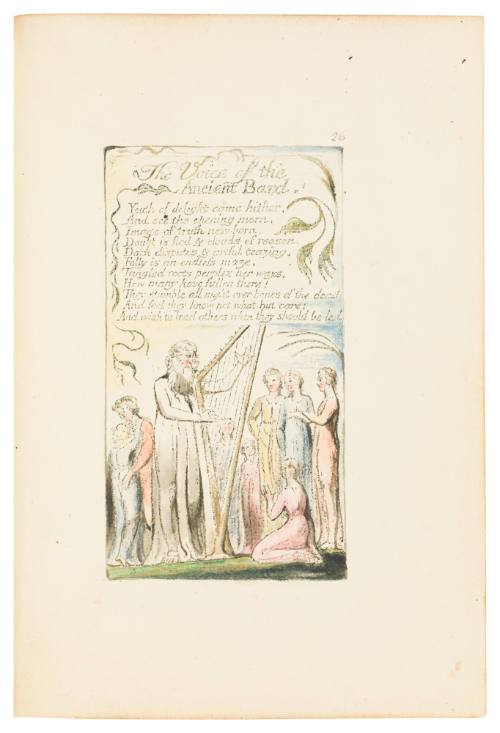 26
The Voice of the
Ancient Bard.
Youth of delight come hither,
And see the opening morn,
Image of truth new born.
Doubt is fled & clouds of reason,
Dark disputes & artful teazing.
Folly is an endless maze,
Tangled roots perplex her ways,
How many have fallen there!
They stumble all night over bones of the dead
And feel they know not what but care:
And wish to lead others when they should be led.